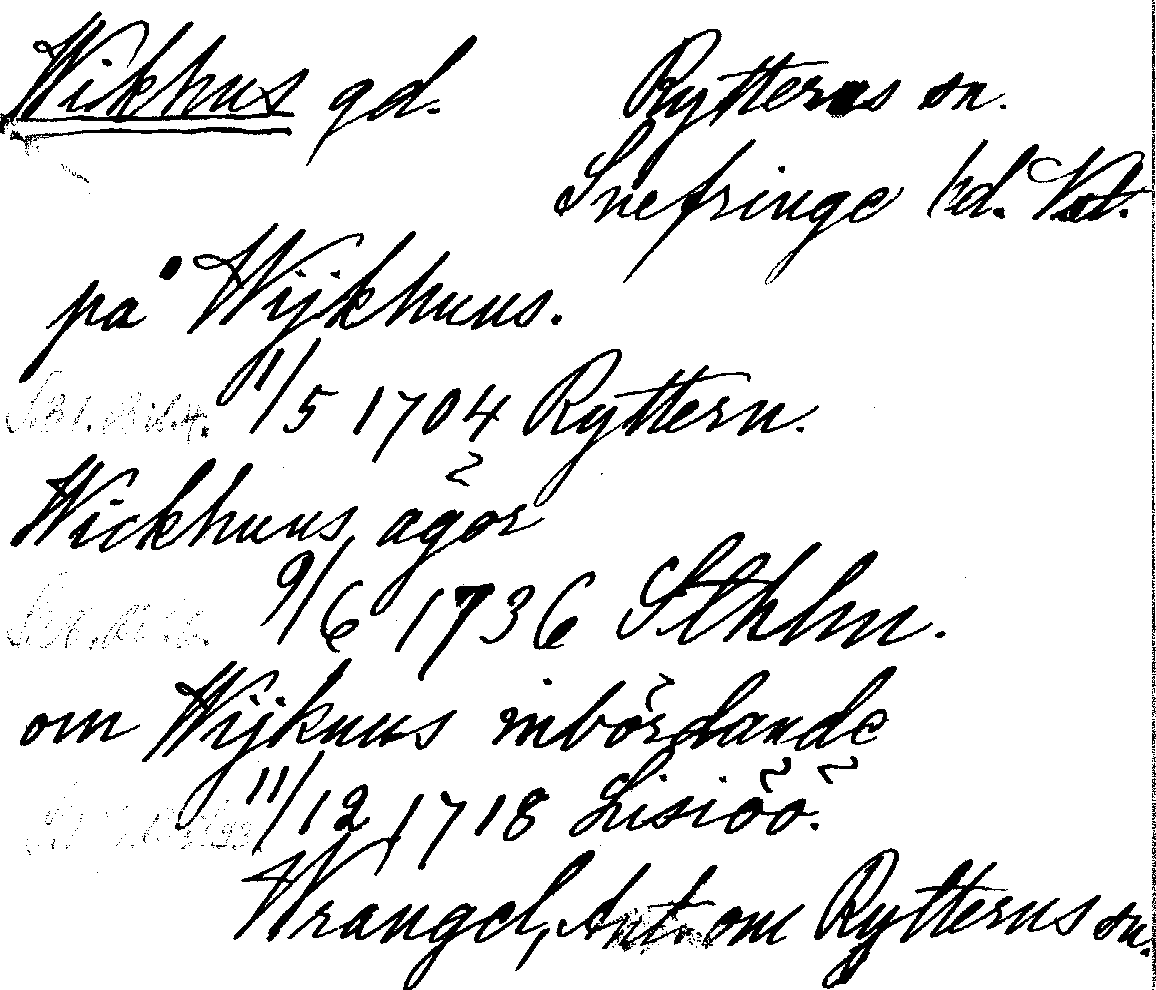 Wikhus gd. Rytterns sn.
Snefringe hd. Vstl.
på Wijkhuus.
11/5 1704 Ryttern.
Wickhuus ägor
9/6 1736 Sthlm.
om Wijkuus inbördande
11/12 1718 Lisiöö.
Wrangel, Ant. om Rytterns sn.